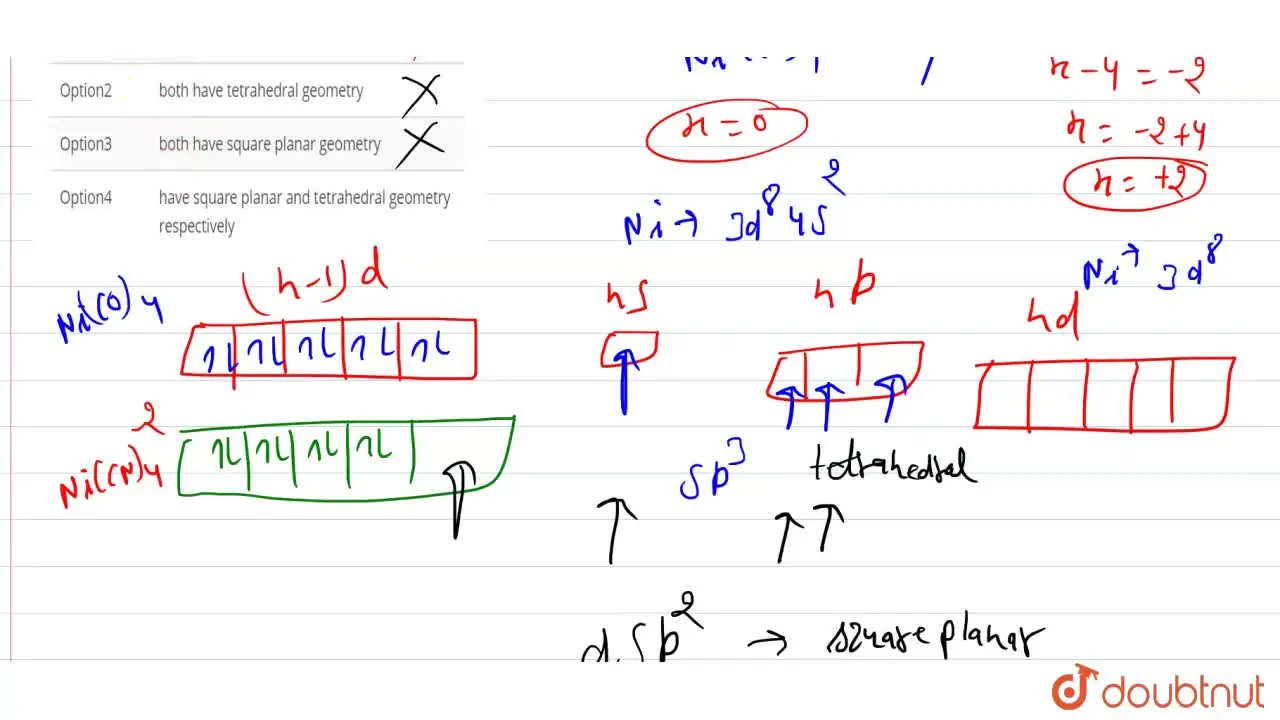 Option2 both have tetrahedral geometry
Option3 both have square planar geometry
Option4 have square planar and tetrahedral geometry
respectively
x = 0
x - 4 = -2
x = -2 + 4
x = +2
Ni → 3d⁸ 4s²
Ni → 3d⁸
Ni(CO)4
(n-1)d
ns
np
nd
Ni(CN)4 2
sp³
tetrahedral
dsp² → square planar
doubtnut